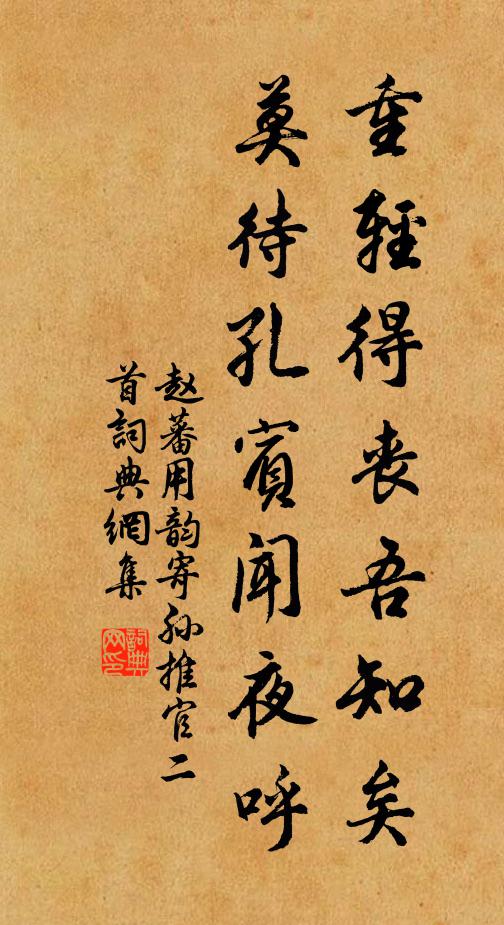 重輕得喪吾知矣
莫待孔賓聞夜呼
趙蕃用韵寄孙推官二
首詞典網集
詞典网印